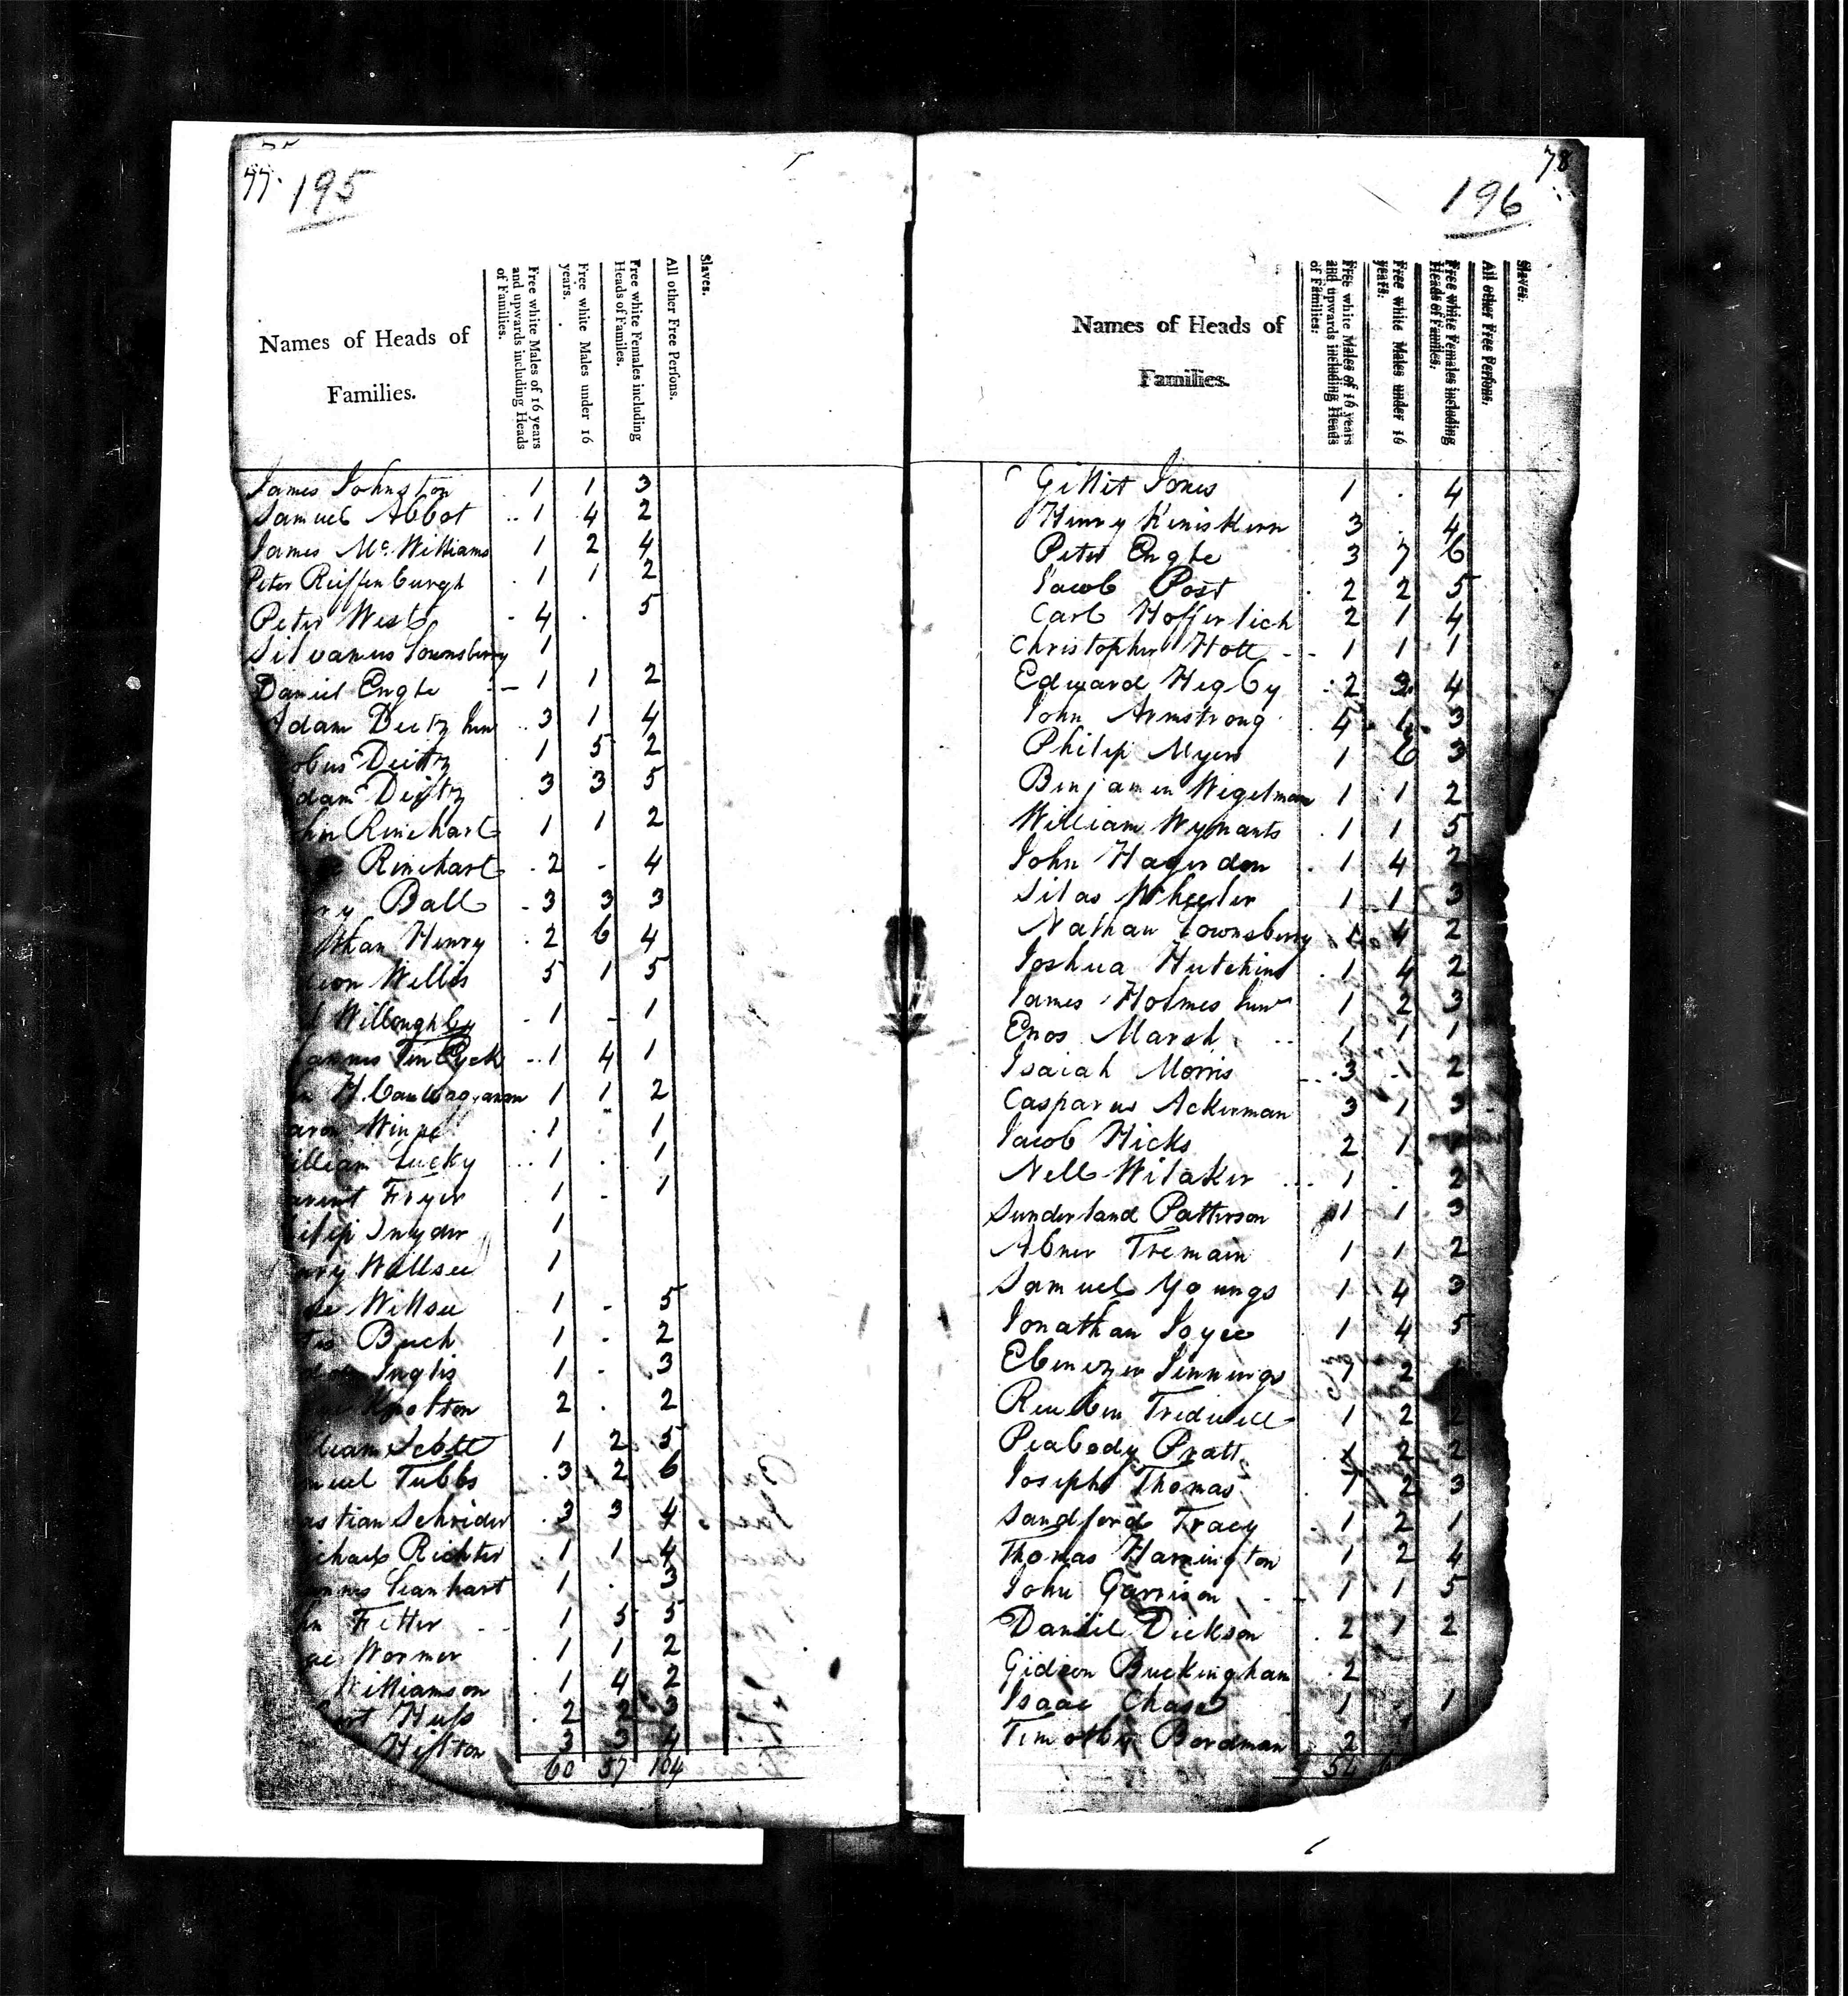 77. 195
Names of Heads of
Families.
Free white Males of 16 years
and upwards including Heads
of Families.
Free white Males under 16
years.
Free white Females including
Heads of Families.
All other Free Persons.
Slaves.
James Johnston 1 1 3
Samuel Abbot 1 4 2
James Mc Williams 1 2 4
Peter Reiffenburgh 1 1 2
Peter West 4 . 5
Silvanus Lownsberry 1
Daniel Engle 1 1 2
Adam Deitz Junr 3 1 4
obus Deitz 1 5 2
dam Deitz 3 3 5
hn Rinehart 1 1 2
Rinehart 2 - 4
ry Ball 3 3 3
than Henry 2 6 4
eon Willis 5 1 5
Willoughby 1 - 1
annis Ten Eyck 1 4 1
H. 1 1 2
aron Winne 1 . 1
illiam Lucky 1 . 1
arent Fryer 1 - 1
ilip Snyder 1
ary Willsee 1
Willsee 1 - 5
Buck 1 - 2
Inglis 1 - 3
2 . 2
lliam Scott 1 2 5
muel Tubbs 3 2 6
astian Schrider 3 3 4
ichael Richter 1 1 4
annis Leanhart 1 . 3
hn Fetter 1 5 5
Wormer 1 1 2
Williamson 1 4 2
Huss 2 2 3
Hilton 3 3 4
60 57 104
78
196
Names of Heads of
Families.
Free white Males of 16 years
and upwards including Heads
of Families.
Free white Males under 16
years.
Free white Females including
Heads of Families.
All other Free Persons.
Slaves.
Gillit Jones 1 . 4
Henry Keniskern 3 . 4
Peter Engle 3 7 6
Jacob Post 2 2 5
Carl Hofferlich 2 1 4
Christopher Holt 1 1 1
Edward Higby 2 3 4
John Armstrong 3
Philip Myers 1 6 3
Benjamin Wigelman 1 1 2
William Wynants 1 1 5
John Hagerdon 1 4 2
Silas Wheeler 1 1 3
Nathan Lownsberry 4 2
Joshua Hutchins 1 4 2
James Holmes Junr 1 2 3
Enos Marsh 1 1 1
Isaiah Morris 3 1 2
Casparus Ackerman 3 1 3
Jacob Hicks 2 1
Nell Witaker 1 . 2
Sunderland Patterson 1 1 3
Abner Tremain 1 1 2
Samuel Youngs 1 4 3
Jonathan Joyce 1 4 5
Ebenezer Jennings 2
Reuben Tredwell 1 2 2
Peabody Pratt 2 2
Joseph Thomas 2 3
Sandford Tracy 1 2 1
Thomas Harrington 1 2 4
John Garrison 1 1 5
Daniel Dickson 2 1 2
Gideon Buckingham 2
Isaac Chase 1 1
Timothy Bordman 2